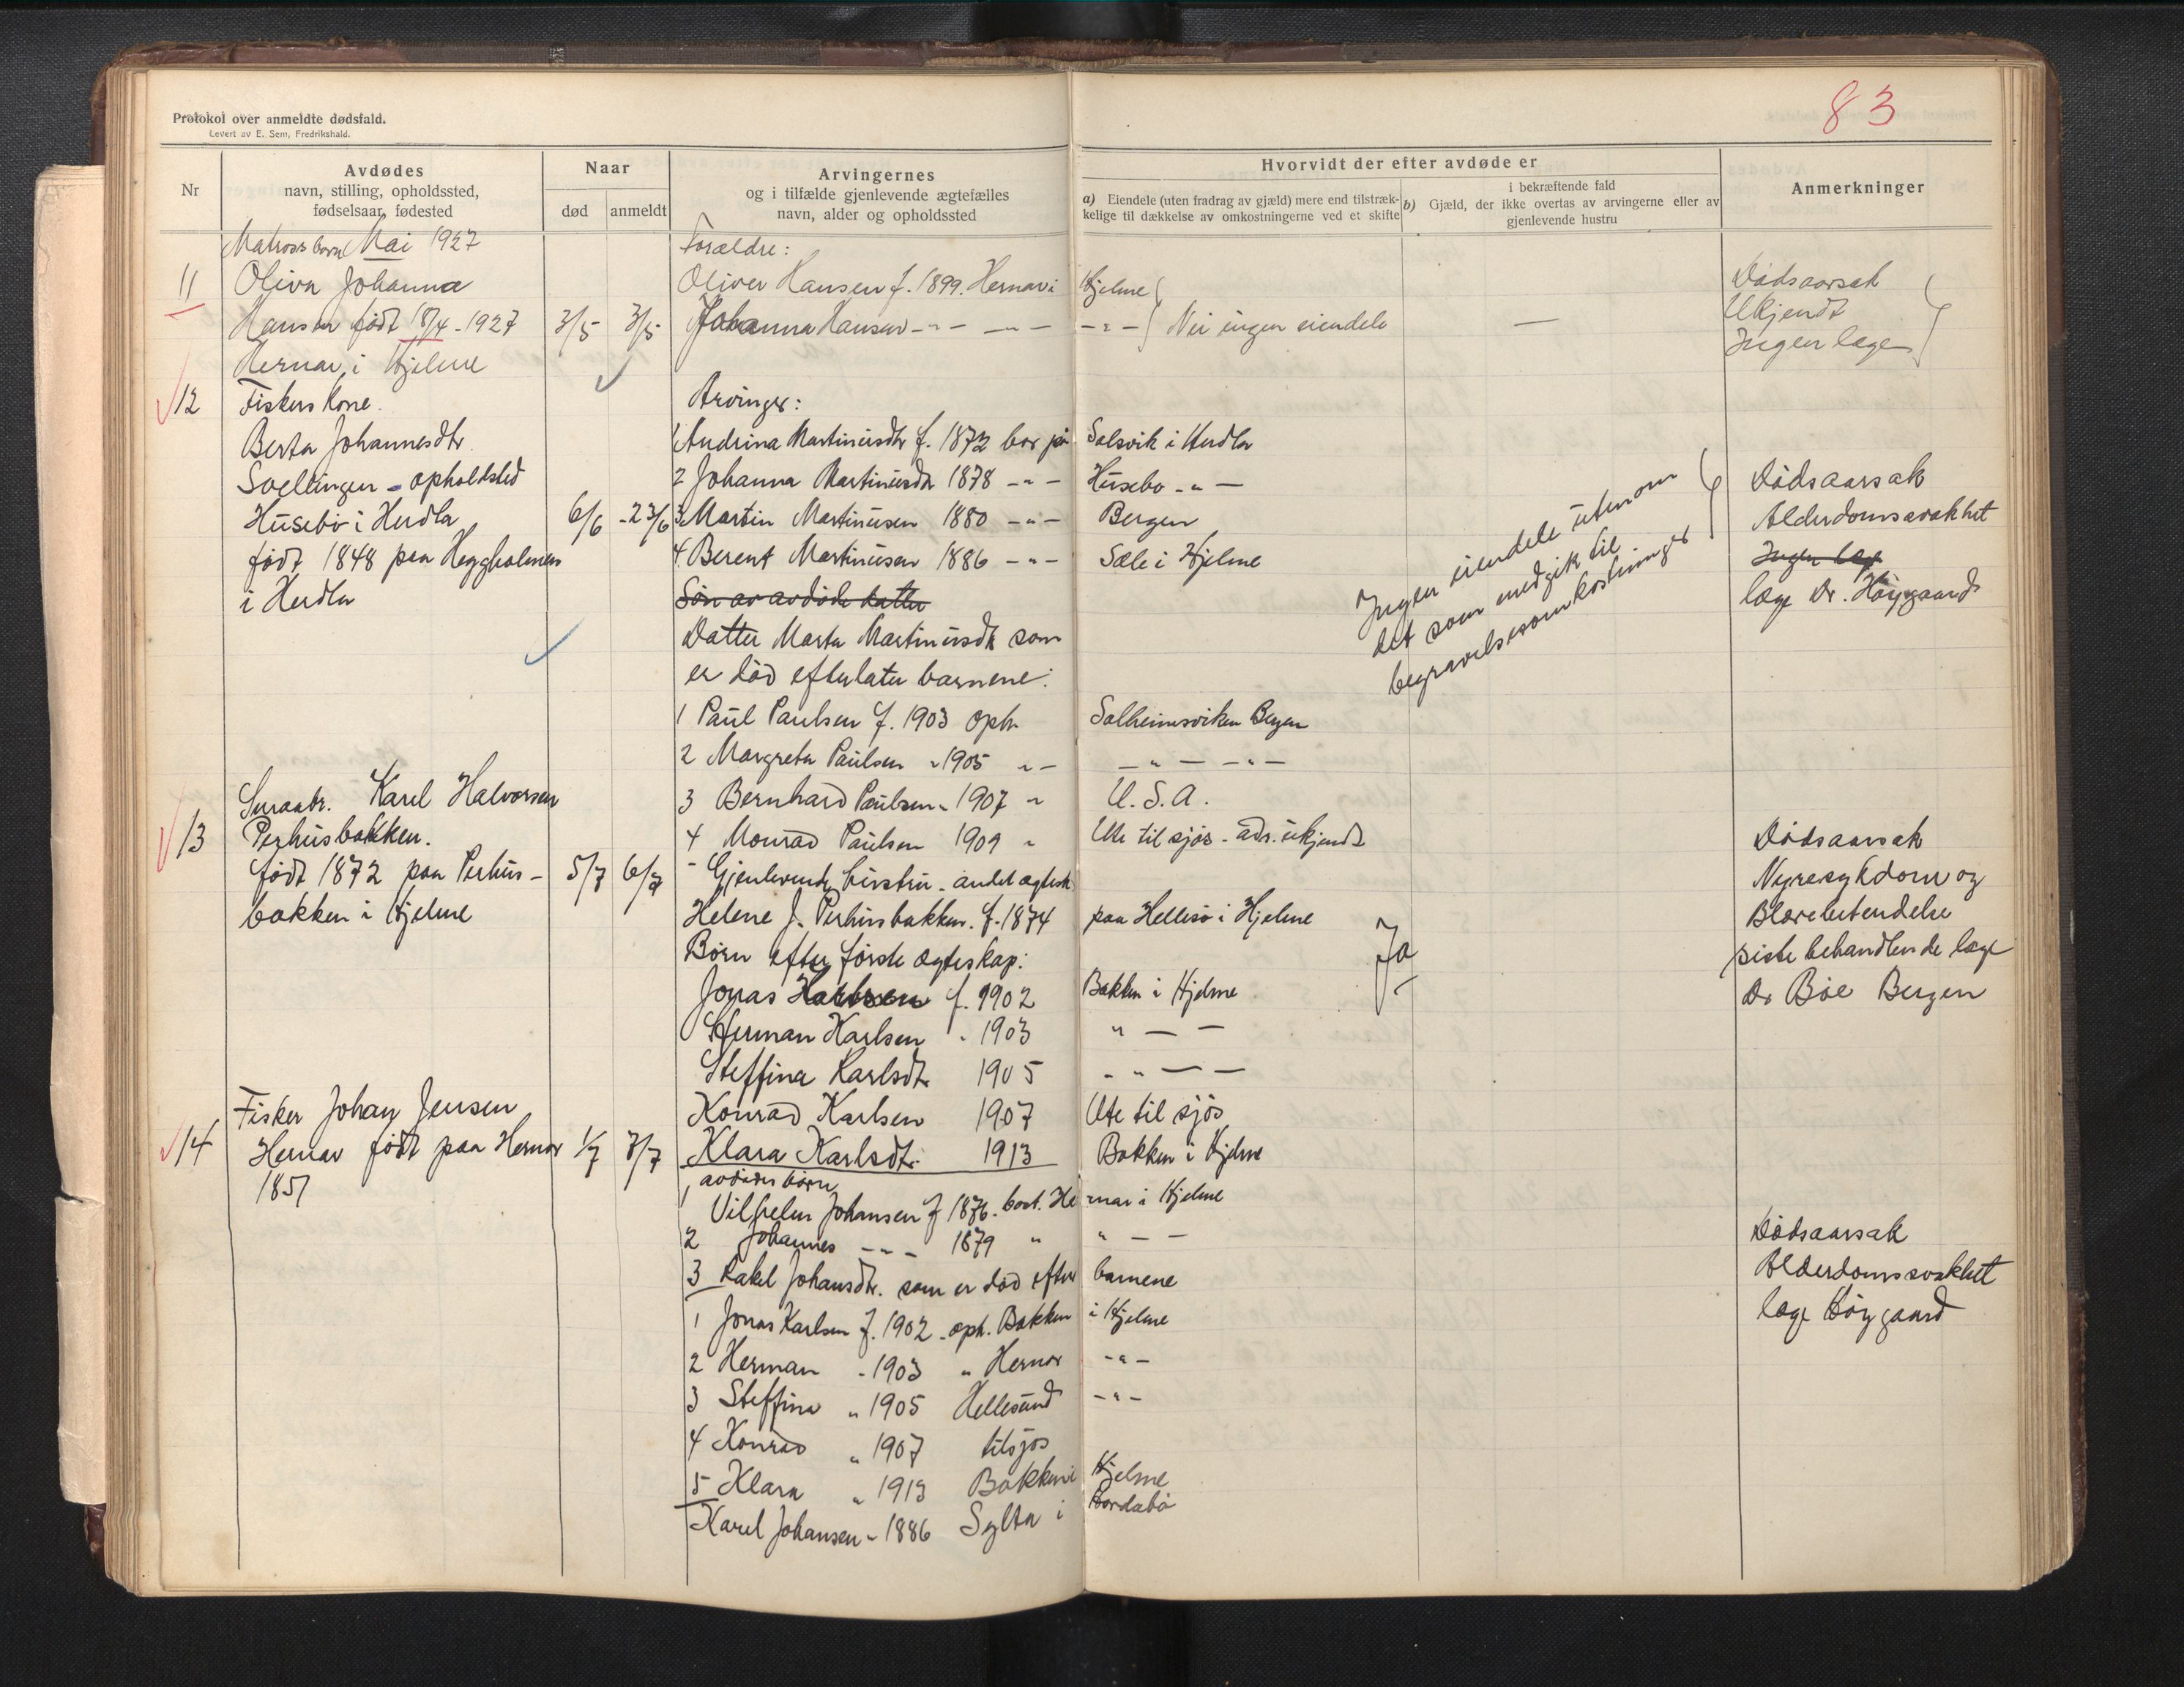 83
Protokol over anmeldte dødsfald.
Levert av E. Sem, Fredrikshald.
Nr
Avdødes
navn, stilling, opholdssted,
fødselsaar, fødested
Naar
død
anmeldt
Arvingernes
og i tilfælde gjenlevende ægtefælles
navn, alder og opholdssted
Hvorvidt der efter avdøde er
a) Eiendele (uten fradrag av gjæld) mere end tilstræk-
kelige til dækkelse av omkostningerne ved et skifte
i bekræftende fald
b) Gjæld, der ikke overtas av arvingerne eller av
gjenlevende hustru
Anmerkninger
Matros barn Mai 1927
11 Oliva Johanna
Hansen født 18/4-1927 3/5 3/5
Hernar i Hjelme
Forældre:
Oliver Hansen f. 1899. Hernar i Hjelme
Johanna Hansen -"- -"- -"- Nei ingen eiendele —
Dødsaarsak
Ukjendt
Ingen læge
12 Fiskers kone.
Berta Johannesdtr.
Soellingen - opholdsted
Husebø i Herdla 6/6 -23/6
født 1848 paa Heggholmen
i Herdla
Arvinger:
1 Andrina Martinusdtr f. 1872 bor på Solsvik i Herdla
2 Johanna Martinusdtr 1878 -"- Husebø -"-
3 Martin Martinusen 1880 -"- Bergen
4. Berent Martinusen 1886 -"- Sæle i Hjelme
Søn av avdøde datter
Datter Marta Martinusdtr som
er død efterlater barnene:
1 Paul Paulsen f. 1903 oph. Solheimsviken Bergen
2 Margreta Paulsen " 1905 "- -"- -"-
3 Bernhard Paulsen " 1907 " U.S.A.
4 Monrad Paulsen 1909 " Ute til sjøs - adr. ukjendt
Ingen eiendele utenom
det som medgik til
begravelsesomkostninger
Dødsaarsak
Alderdomssvakhet
Ingen læge
læge Dr. Høygaard
13 Smaabr. Karl Halvorsen
Perhusbakken.
født 1872 paa Perhus- 5/7 6/7
bakken i Hjelme
- Gjenlevende hustru - andet ægtesk.
Helene J. Perhusbakken. f. 1874 paa Hellesø i Hjelme
Børn efter første ægteskap:
Jonas Karlsen f. 1902 Bakken i Hjelme
Herman Karlsen " 1903 " — —
Steffina Karlsdtr. 1905 " " — —
Konrad Karlsen 1907 Ute til sjøs
Klara Karlsdtr. 1913 Bakken i Hjelme
Ja
Dødsaarsak
Nyresykdom og
Blærebetendelse
siste behandlende læge
Dr Bøe Bergen
14 Fisker Johan Jensen
Hernar født paa Hernar 1/7 7/7
1851
avdødes børn
1 Vilhelm Johansen f 1876. bost. Hernar i Hjelme
2 Johannes -"- 1879 " " — —
3 Rakel Johansdtr. som er død efter barnene
1 Jonas Karlsen f. 1902 - oph. Bakken i Hjelme
2 Herman " 1903 " Hernar -"-
3 Steffina " 1905 Hellesund -"-
4 Konrad " 1907 tilsjøs
5 Klara " 1913 Bakken i Hjelme
Karl Johansen " 1886 Sylta i Bordabø
Dødsaarsak
Alderdomssvakhet
læge Høygaard